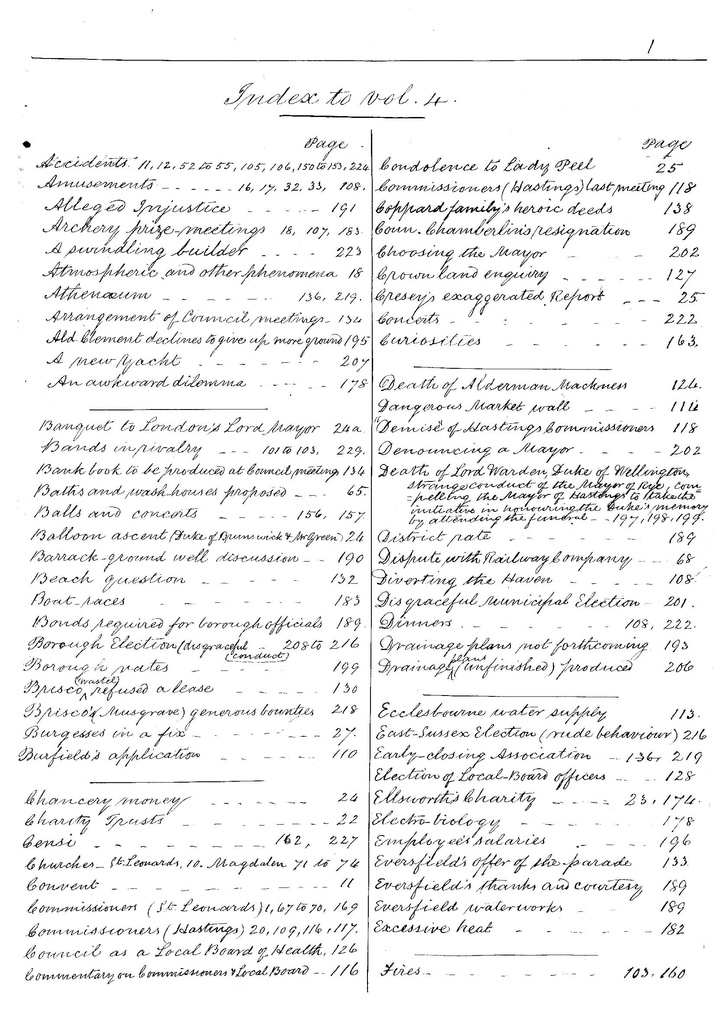 1
Index to vol. 4.
Page.
Accidents 11, 12, 52 to 55, 105, 106, 150 to 153, 224
Amusements - - - - - 16, 17, 32, 33, 108.
Alleged Injustice - - - - - 191
Archery prize-meetings 18, 107, 183.
A swindling builder - - - - 223
Atmospheric and other phenomena 18
Athenæum - - - - - 136, 219.
Arrangement of Council meetings - 134
Ald Clement declines to give up more ground 195
A new Yacht - - - - - 207
An awkward dilemma - - - - 178
Banquet to London's Lord Mayor 24a
Bands in rivalry - - - 101 to 103, 229.
Bank book to be produced at Council meeting 134
Baths and wash-houses proposed - - - 65.
Balls and concerts - - - - 156, 157.
Balloon ascent (Duke of Brunswick & Mr Green) 24
Barrack-ground well discussion - - - 190
Beach question - - - - - 132
Boat-races - - - - - 183
Bonds required for borough officials 189.
Borough Election (disgraceful conduct) - 208 to 216
Borough rates - - - - 199
Brisco (Wastel) refused a lease - - - - 130
Brisco's (Musgrave) generous bounties 218
Burgesses in a fix - - - - - 27.
Burfield's application - - - - 110
Chancery money - - - - - 24
Charity Trusts - - - - - 22
Censi - - - - - 162, 227
Churches - St. Leonards, 10. Magdalen 71 to 74
Convent - - - - - 11
Commissioners (St. Leonards) 1, 67 to 70, 169
Commissioners (Hastings) 20, 109, 116, 117.
Council as a Local Board of Health, 126
Commentary on Commissioners & Local Board - - 116
Page
Condolence to Lady Peel 25
Commissioners (Hastings) last meeting 118
Coppard family's heroic deeds 138
Coun. Chamberlin's resignation 189
Choosing the Mayor - - - - 202
Crown land enquiry - - - - 127
Cresey's exaggerated Report - - - 25
Concerts - - - - - 222.
Curiosities - - - - - 163.
Death of Alderman Mackness 124.
Dangerous Market wall - - - - 114
"Demise" of Hastings Commissioners 118
Denouncing a Mayor - - - - 202
Death of Lord Warden, Duke of Wellington,
strange conduct of the Mayor of Rye, com
=pelling the Mayor of Hastings to take the
initiative in honouring the Duke's memory
by attending the funeral - - 197, 198, 199.
District rate - - - - - 189
Dispute with Railway Company - - - 68
Diverting the Haven - - - 108
Disgraceful Municipal Election - 201.
Dinners - - - - - 108, 222.
Drainage plans not forthcoming 193
Drainage plans (unfinished) produced 206
Ecclesbourne water supply 113.
East-Sussex Election (rude behaviour) 216
Early-closing Association - - 136, 219
Election of Local-Board officers - - 128
Ellsworth's Charity - - - - 23, 174.
Electro-biology - - - - 178
Employee's salaries - - - - 196
Eversfield's offer of the parade 133
Eversfield's thanks and courtesy 189
Eversfield waterworks - - - 189
Excessive heat - - - - 182
Fires - - - - - 103, 160